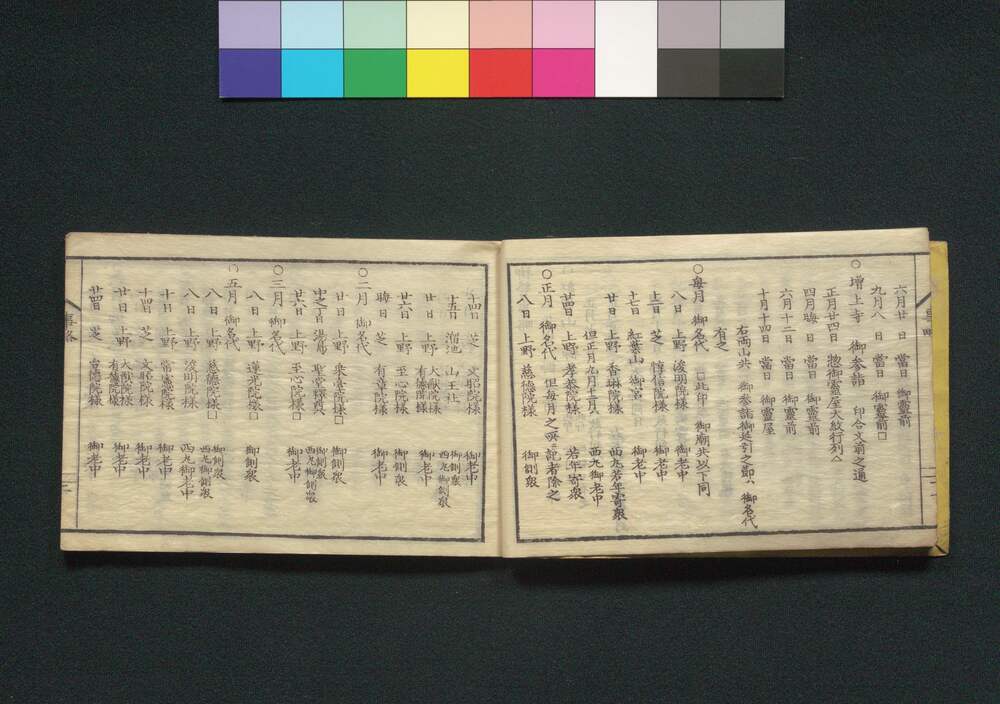 六月廿日　當日　御靈前
九月八日　當日　御靈前□
○増上寺　御参詣　印合文前之通
正月廿四日　惣御靈屋大紋行列
四月晦日　當日　御靈前
六月十二日　當日　御靈前
十月十四日　當日　御靈屋
右両山共　御参詣御延引之節ハ　御名代
有之
○毎月　御名代　□此印ハ　御廟共以下同
八日　上野　浚明院様　御老中
十二日　芝　惇信院様　御老中
十七日　紅葉山　御宮　御老中
廿日　上野　香琳院様　西丸若年寄衆
但正月九月十二月ハ　西丸御老中
廿四日　孝恭院様　若年寄衆
○正月　御名代　但毎月之所ニ記者除之
八日　上野　慈徳院様　御側衆
十四日　芝　文昭院様　御老中
十五日　溜池　山王社　御側衆　西丸御側衆
廿日　上野　大猷院様　有徳院様　御老中
廿六日　上野　至心院様　御側衆
晦日　芝　有章院様　御老中
○二月　御名代
廿日　上野　乗臺院様□　御側衆
中之丁日　湯島　聖堂　御側衆　西丸御側衆
廿六日　上野　至心院様□　御老中
○三月　御名代
八日　上野　蓮光院様□　御側衆
○五月　御名代
八日　上野　慈徳院様□　御側衆　西丸御側衆
八日　上野　浚明院様□　西丸御老中
十日　上野　常憲院様　御老中
十四日　芝　文昭院様　御老中
廿日　上野　大猷院様　有徳院様　御老中
廿四日　芝　台徳院様　御老中